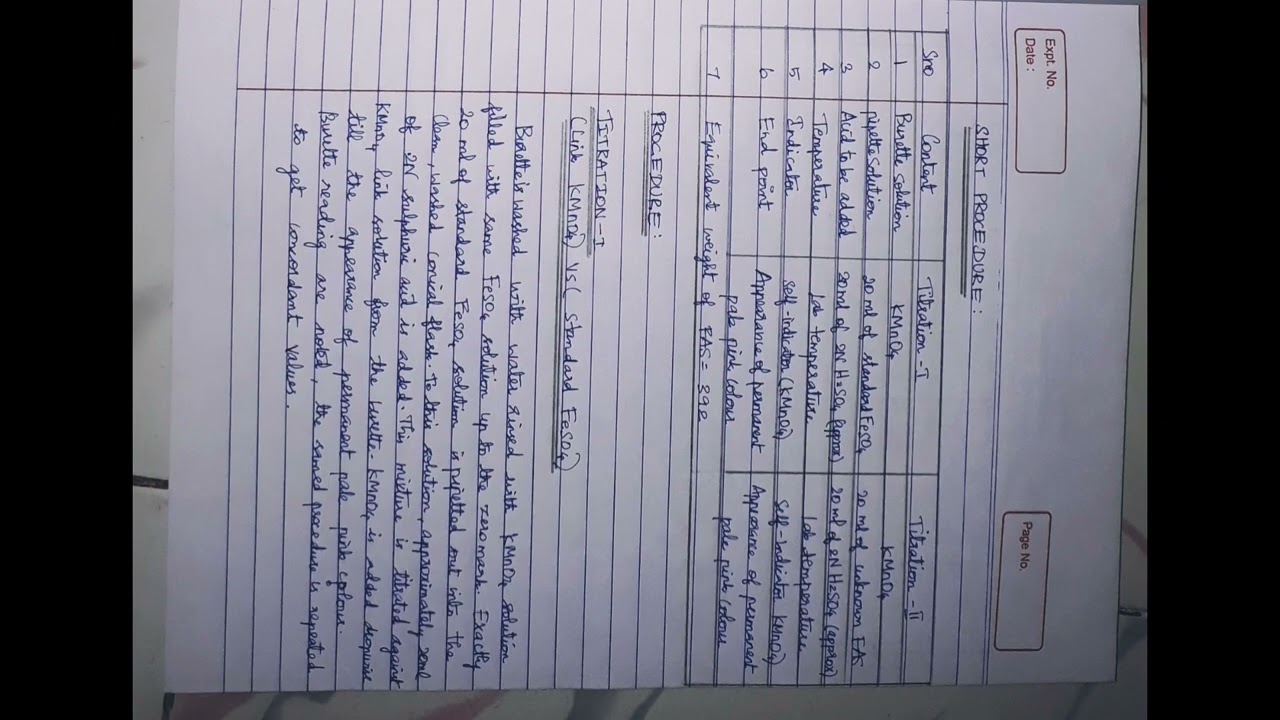 Expt. No.
Date :
Page No.
SHORT PROCEDURE:
Sno Content Titration-I Titration-II
1 Burette solution KMnO4 KMnO4
2 pipette solution 20 ml of standard FeSO4 20 ml of unknown FAS
3 Acid to be added 20 ml of 2N H2SO4 (approx) 20 ml of 2N H2SO4 (approx)
4 Temperature Lab temperature Lab temperature
5 Indicator Self-indicator (KMnO4) Self-Indicator KMnO4)
6 End point Appearance of permanent Appearance of permanent
pale pink colour pale pink colour
7 Equivalent weight of FAS = 392
PROCEDURE:
TITRATION-I
(Link KMnO4) Vs (Standard FeSO4)
Burette is washed with water rinsed with KMnO4 solution
filled with same FeSO4 solution up to the zero mark. Exactly
20 ml of standard FeSO4 solution is pipetted out into the
clean, washed conical flask. To this solution, approximately, 20ml
of 2N sulphuric acid is added. This mixture is titrated against
KMnO4 link solution from the burette. KMnO4 is added dropwise
till the appearance of permanent pale pink colour.
Burette reading are noted, the same procedure is repeated
to get concordant values.